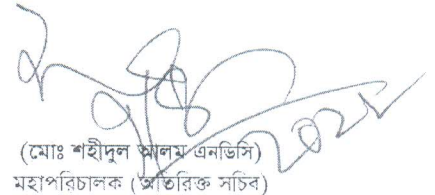 (মোঃ শহীদুল আলম এনডিসি)
মহাপরিচালক (অতিরিক্ত সচিব)